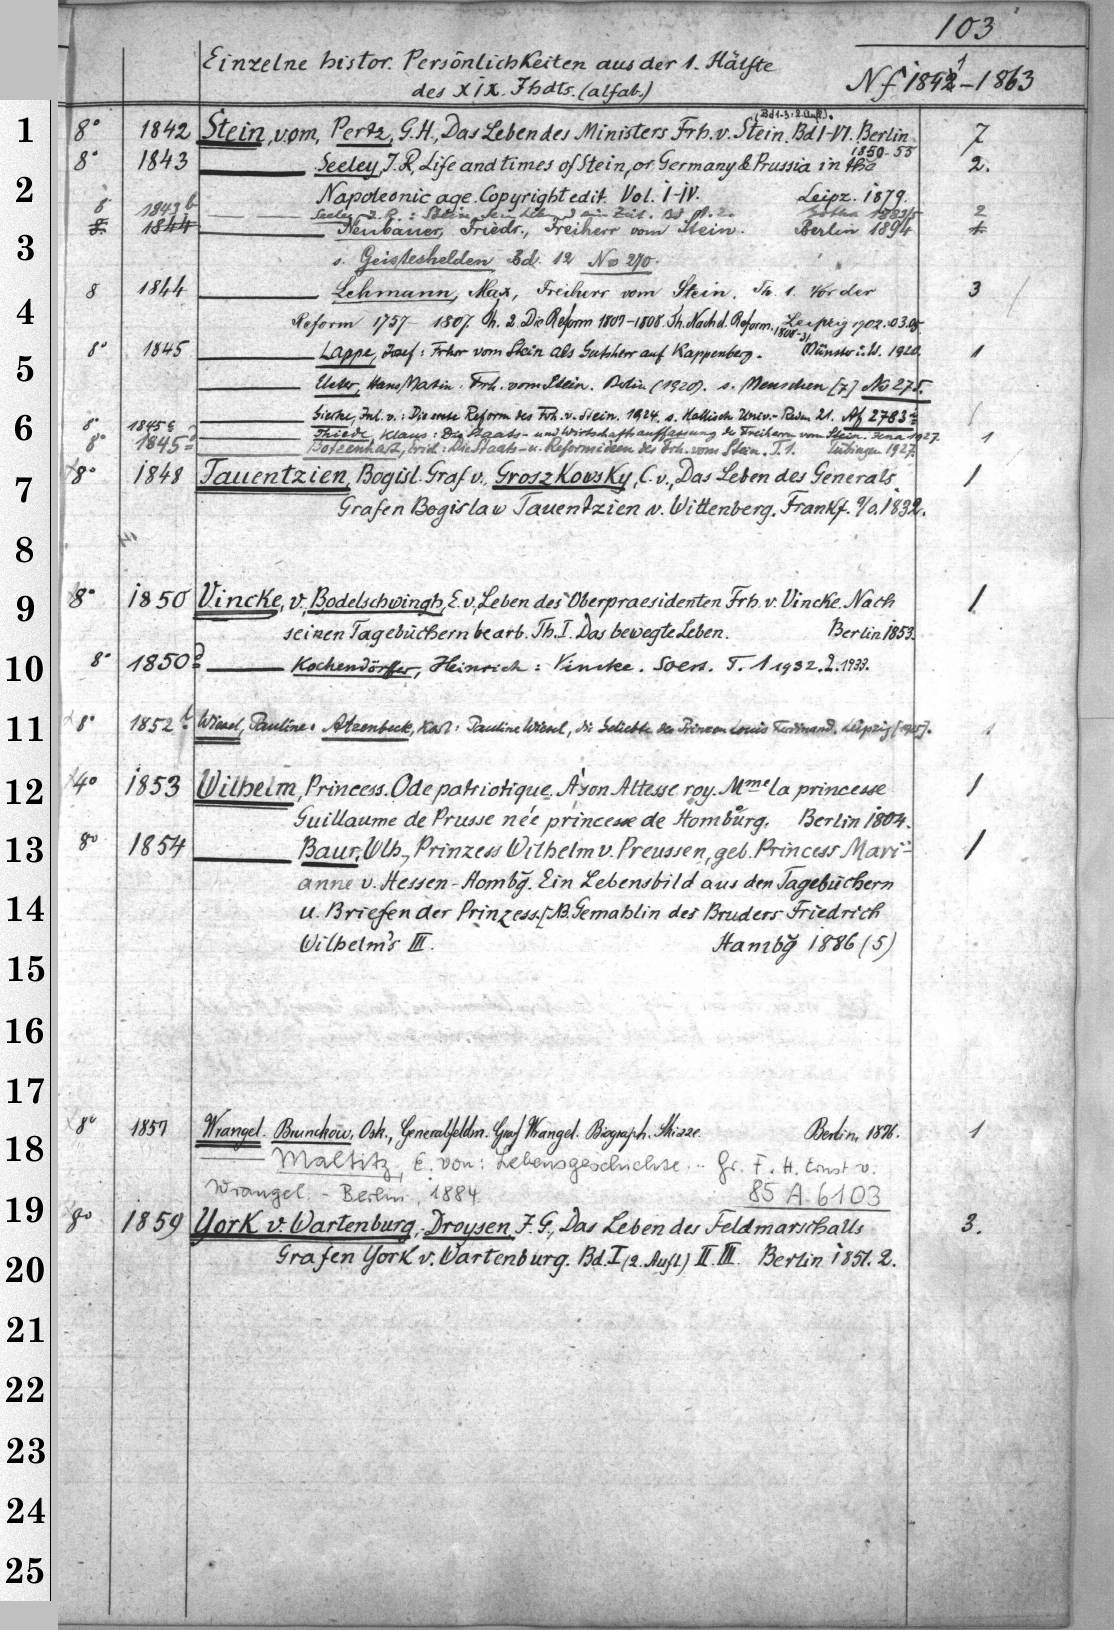 103
Einzelne histor. Persönlichkeiten aus der 1. Hälfte
des XIX. Jhdts. (alfab.)
Nf 1842-1863
1 8° 1842 Stein, vom, Pertz, G.H., Das Leben des Ministers Frh. v. Stein. Bd I-VI. Berlin 7
1850-55
8° 1843 Seeley, J.R., Life and times of Stein, or Germany & Prussia in the 2.
2 Napoleonic age. Copyright edit. Vol. I-IV. Leipz. 1879.
8 1843 b Seeley J. R.: Stein, sein Leben u. seine Zeit. Gotha 2
8. 1844 Neubauer, Friedr., Freiherr vom Stein. Berlin 1894 1
3 s. Geisteshelden Bd. 12 No 270.
8 1844 Lehmann, Max, Freiherr vom Stein. Th. 1. Vor der 3
4 Reform 1757-1807. Th. 2. Die Reform 1807-1808. Th. Nach d. Reform. 1808-31 Leipzig 1902.03.05
8° 1845 Lappe, Josef: Frhr vom Stein als Gutsherr auf Kappenberg. Münster i.W. 1920. 1
5 Hans Martin: Frh. vom Stein. Berlin (1920). s. Menschen [7] No 275.
Gierke, Jul. v.: Die erste Reform des Frh. v. Stein. 1924. s. Hallische Univ.-Reden 21. Af 2783
6 8° 1845 Thiede, Klaus: Die Staats- und Wirtschaftsauffassung des Freiherrn vom Stein. Jena 1927.
8° 1845 Botzenhart, Erich: Die Staats- u. Reformideen des Frh. vom Stein. T. 1. Tübingen 1927. 1
7 8° 1848 Tauentzien, Bogisl. Graf v., Groszkowsky, C. v., Das Leben des Generals 1
Grafen Bogislaw Tauentzien v. Wittenberg. Frankf. a/o. 1832.
8
9 8° 1850 Vincke, v., Bodelschwingh, E. v., Leben des Oberpraesidenten Frh. v. Vincke. Nach 1
seinen Tagebüchern bearb. Th. I. Das bewegte Leben. Berlin 1853.
10 8° 1850 Kochendörffer, Heinrich: Vincke. Soest. T. 1 1932. 2. 1933.
11 8° 1852 Wiesel, Pauline: Atzenbeck, Karl: Pauline Wiesel, die Geliebte des Prinzen Louis Ferdinand. Leipzig [1925]. 1
12 4° 1853 Wilhelm, Princess. Ode patriotique. A son Altesse roy. Mme la princesse 1
Guillaume de Prusse née princesse de Hombürg. Berlin 1804.
13 8° 1854 Baur, Wlh., Prinzess Wilhelm v. Preussen, geb. Princess Mari= 1
anne v. Hessen-Hombg. Ein Lebensbild aus den Tagebüchern
14 u. Briefen der Prinzess. [NB. Gemahlin des Bruders Friedrich
Wilhelm's III. Hambg 1886 (5)
15
16
17
8° 1857 Wrangel. Brunckow, Osk., Generalfeldm. Graf Wrangel. Biograph. Skizze. Berlin, 1876. 1
18 Maltitz, E. von: Lebensgeschichte .. Gr. F. H. Ernst v.
Wrangel. - Berlin, 1884. 85 A 6103
19 8° 1859 York v. Wartenburg, Droysen, J. G., Das Leben des Feldmarschalls 3.
20 Grafen York v. Wartenburg. Bd. I (2. Aufl.) II. III. Berlin 1851. 2.
21
22
23
24
25